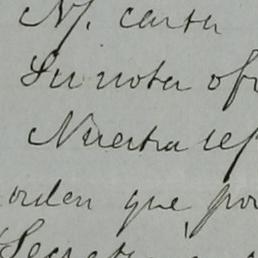 N/. carta
Su nota ofi
Nuestra ref
orden que por
Secret